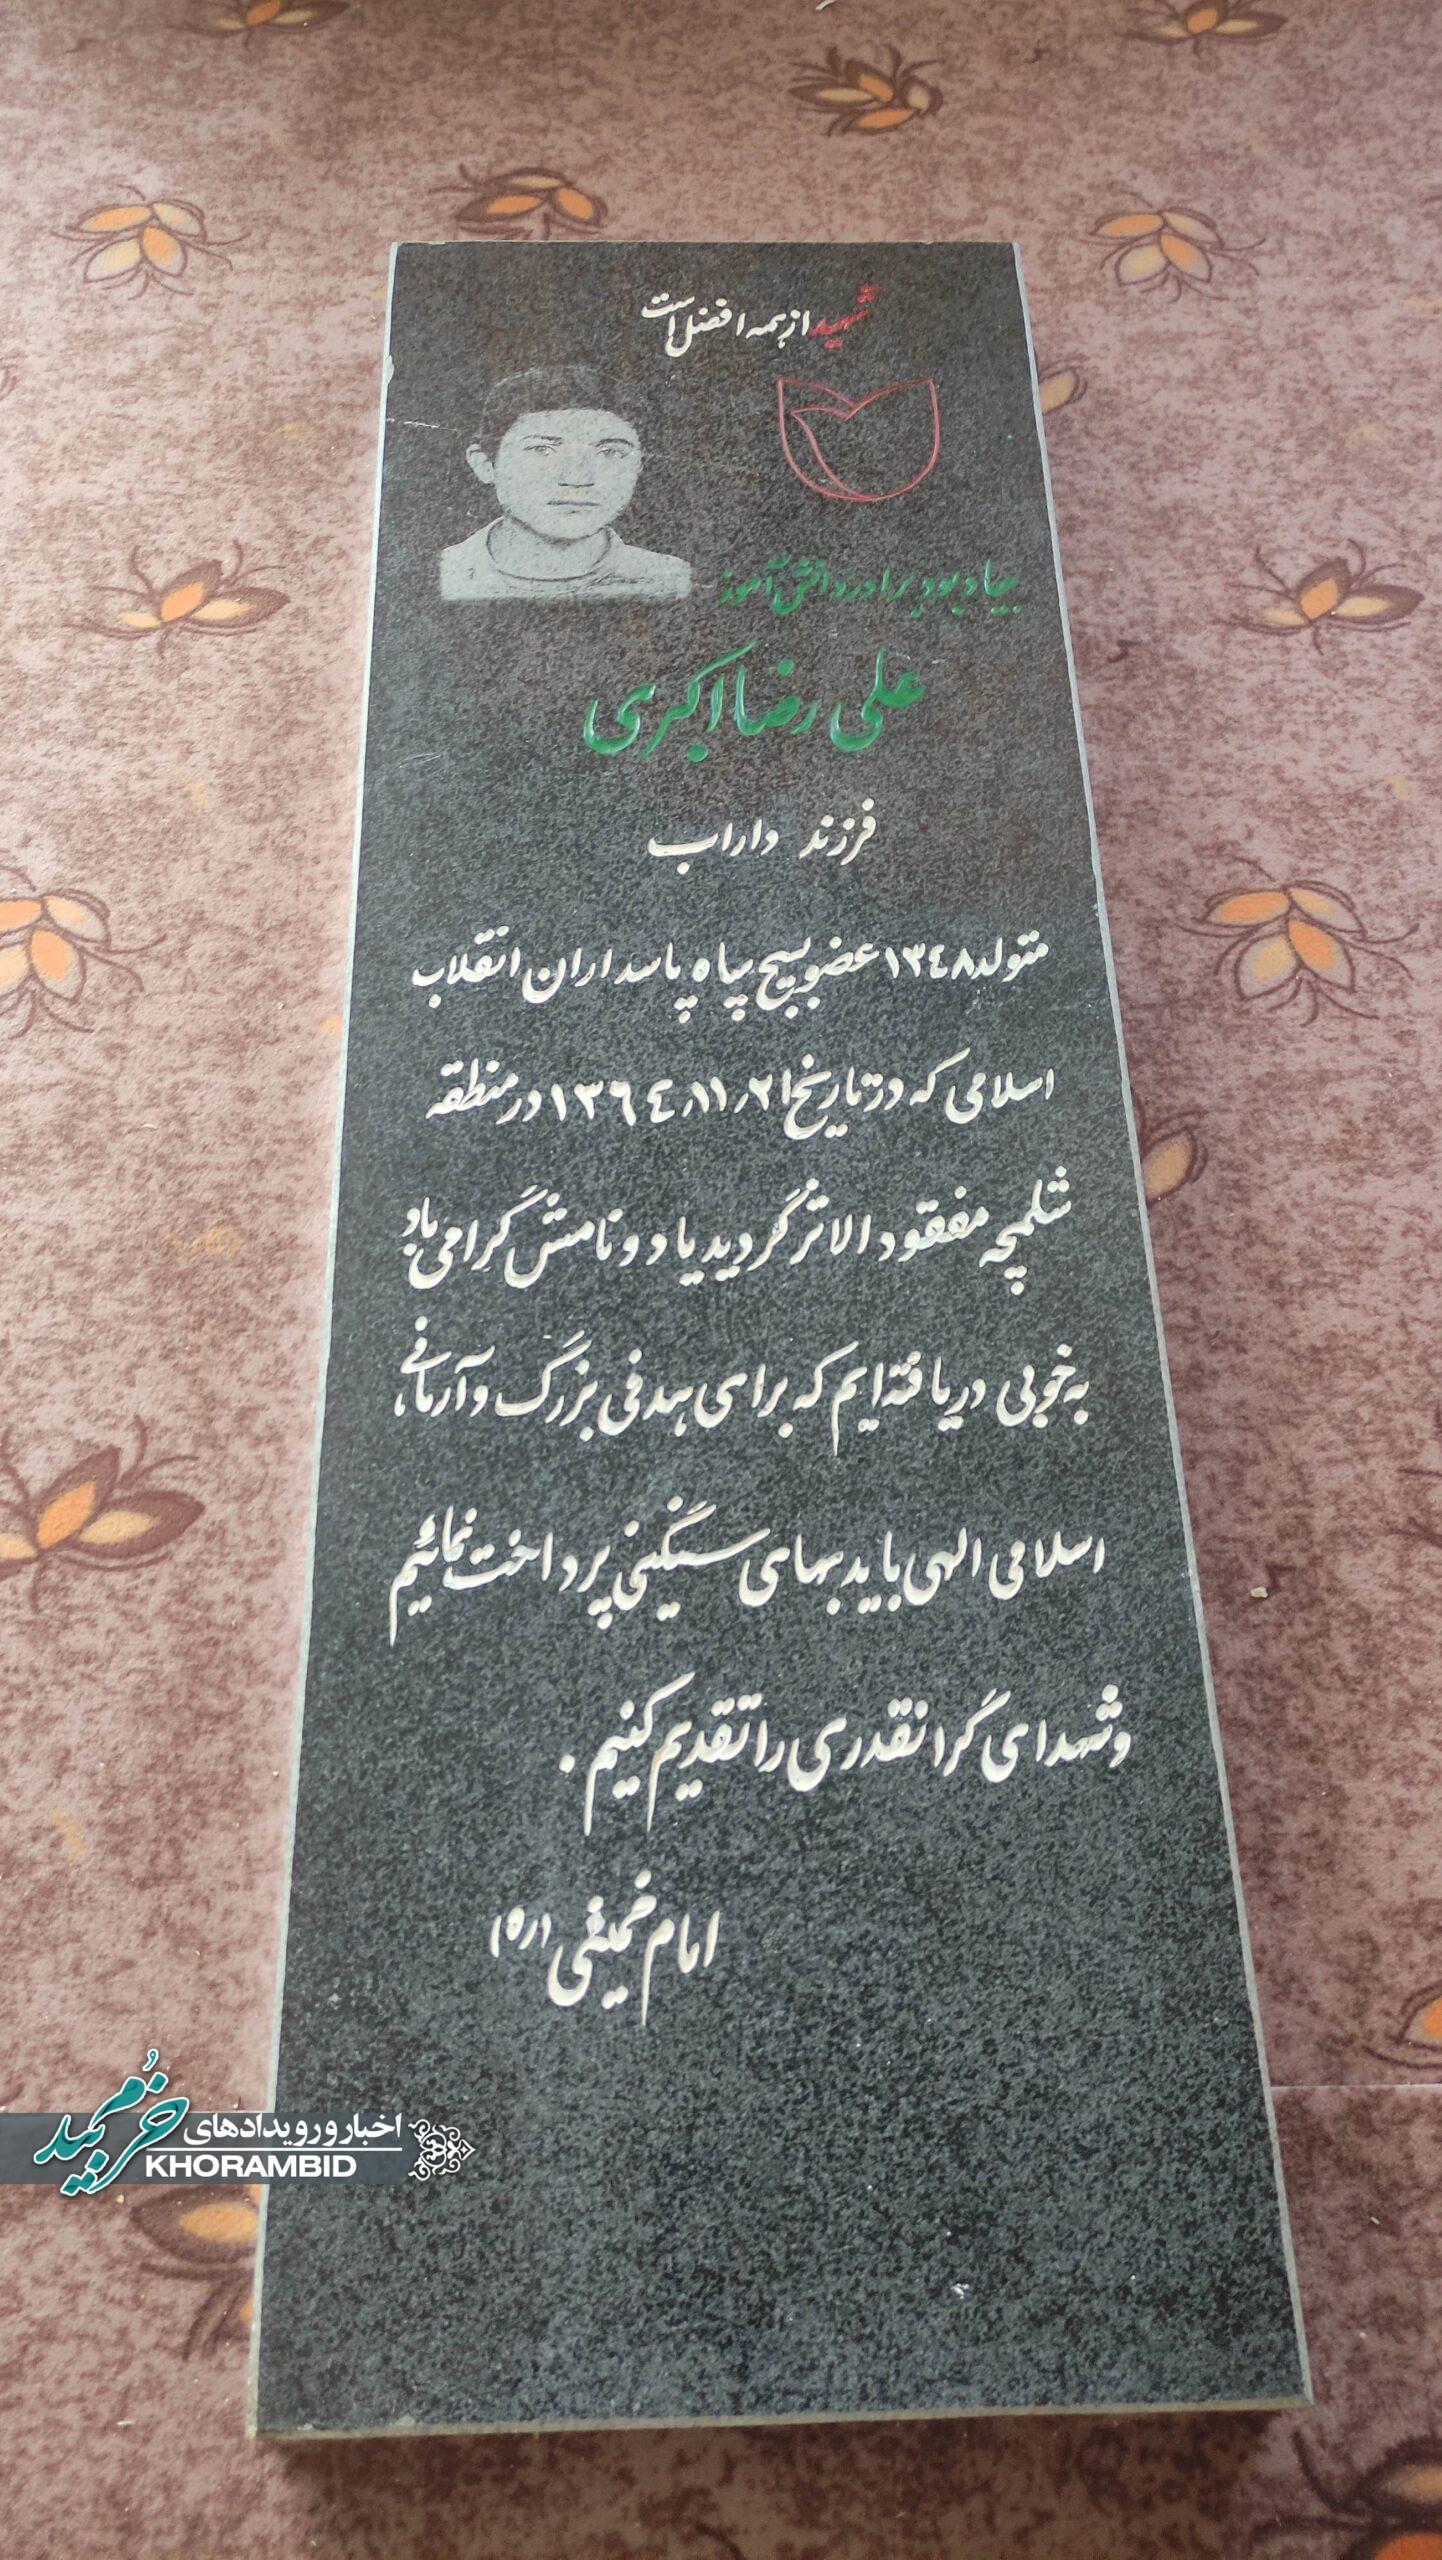 شهید از همه افضل است
بیاد بود برادر دانش آموز
علی رضا اکبری
فرزند داراب
متولد ۱۳٤۸ عضو بسیج سپاه پاسداران انقلاب
اسلامی که در تاریخ ۱۳٦٤٫۱۱٫۲۱ در منطقه
شلمچه مفقود الاثر گردید یاد و نامش گرامی باد
به خوبی دریافته ایم که برای هدفی بزرگ و آرمانی،
اسلامی الهی باید بهای سنگینی پرداخت نمائیم
و شهدای گرانقدری را تقدیم کنیم .
امام خمینی (ره)
خرمبید
اخبار و رویدادهای
KHORAMBID